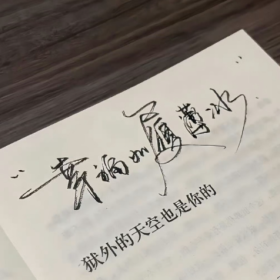 “幸福如履薄冰”
狱外的天空也是你的